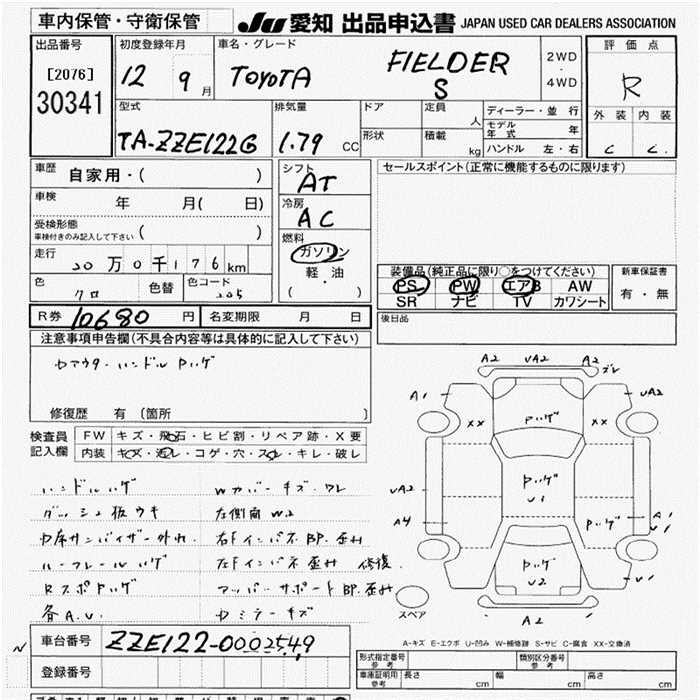 車内保管・守衛保管
JU 愛知 出品申込書 JAPAN USED CAR DEALERS ASSOCIATION
出品番号
[2076]
30341
初度登録年月
12 9月
車名・グレード
TOYOTA FIELDER
S
2WD
・
4WD
評価点
R
外装 内装
C C
型式
TA-ZZE122G
排気量
1.79 CC
ドア
形状
定員
人
積載
kg
ディーラー・並行
モデル年式 年
ハンドル 左・右
車歴
自家用・( )
車検
年 月( 日)
受検形態
車検付きのみ記入して下さい ( )
走行
20万0千176km
色
クロ
色替
色コード
205
シフト
AT
冷房
AC
燃料
ガソリン
軽・油
( ・ )
セールスポイント(正常に機能するものに限ります)
装備品(純正品に限り○をつけてください)
PS PW エアB AW
SR ナビ TV カワシート
新車保証書
有・無
後日品
R券 10680 円
名変期限 月 日
注意事項申告欄(不具合内容等は具体的に記入して下さい)
ハンドル Pハゲ
修復歴 有 〔箇所 〕
検査員
記入欄
FW キズ・飛石・ヒビ割・リペア跡・X要
内装 キズ・汚レ・コゲ・穴・スレ・キレ・破レ
ハンドルハゲ
ダッシュ板ウキ
サンバイザー外れ
ルーフレールハゲ
RスポPハゲ
各A.U.
Wカバーキズ・ワレ
左側面W2
右Fインパネ BP.歪み
左Fインパネ歪み 修復
アッパーサポートBP.歪み
ミラーキズ
A2 UA2 A2 ズレ
A1 UA2
XX XX
Pハゲ
Pハゲ
U1
UA2
A4
Pハゲ
A1
U1
Pハゲ
U2
A2
スペア
A-キズ E-エクボ U-凹み W-補修跡 S-サビ C-腐食 XX-交換済
車台番号 ZZE122-0002549
登録番号
形式指定番号
参考
類別区分番号
参考
車庫証明用
参考
長さ cm
幅 cm
高さ cm